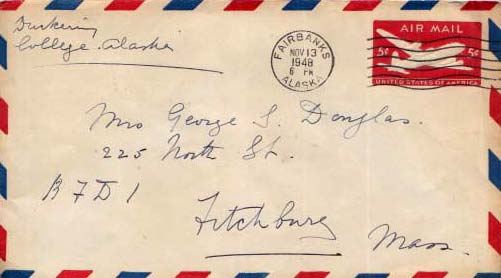 College. Alaska
FAIRBANKS
NOV 13
1948
6 PM
ALASKA
AIR MAIL
5¢ 5¢
UNITED STATES OF AMERICA
Mrs George S. Douglas.
225 North St.
R F D 1
Fitchburg
Mass.